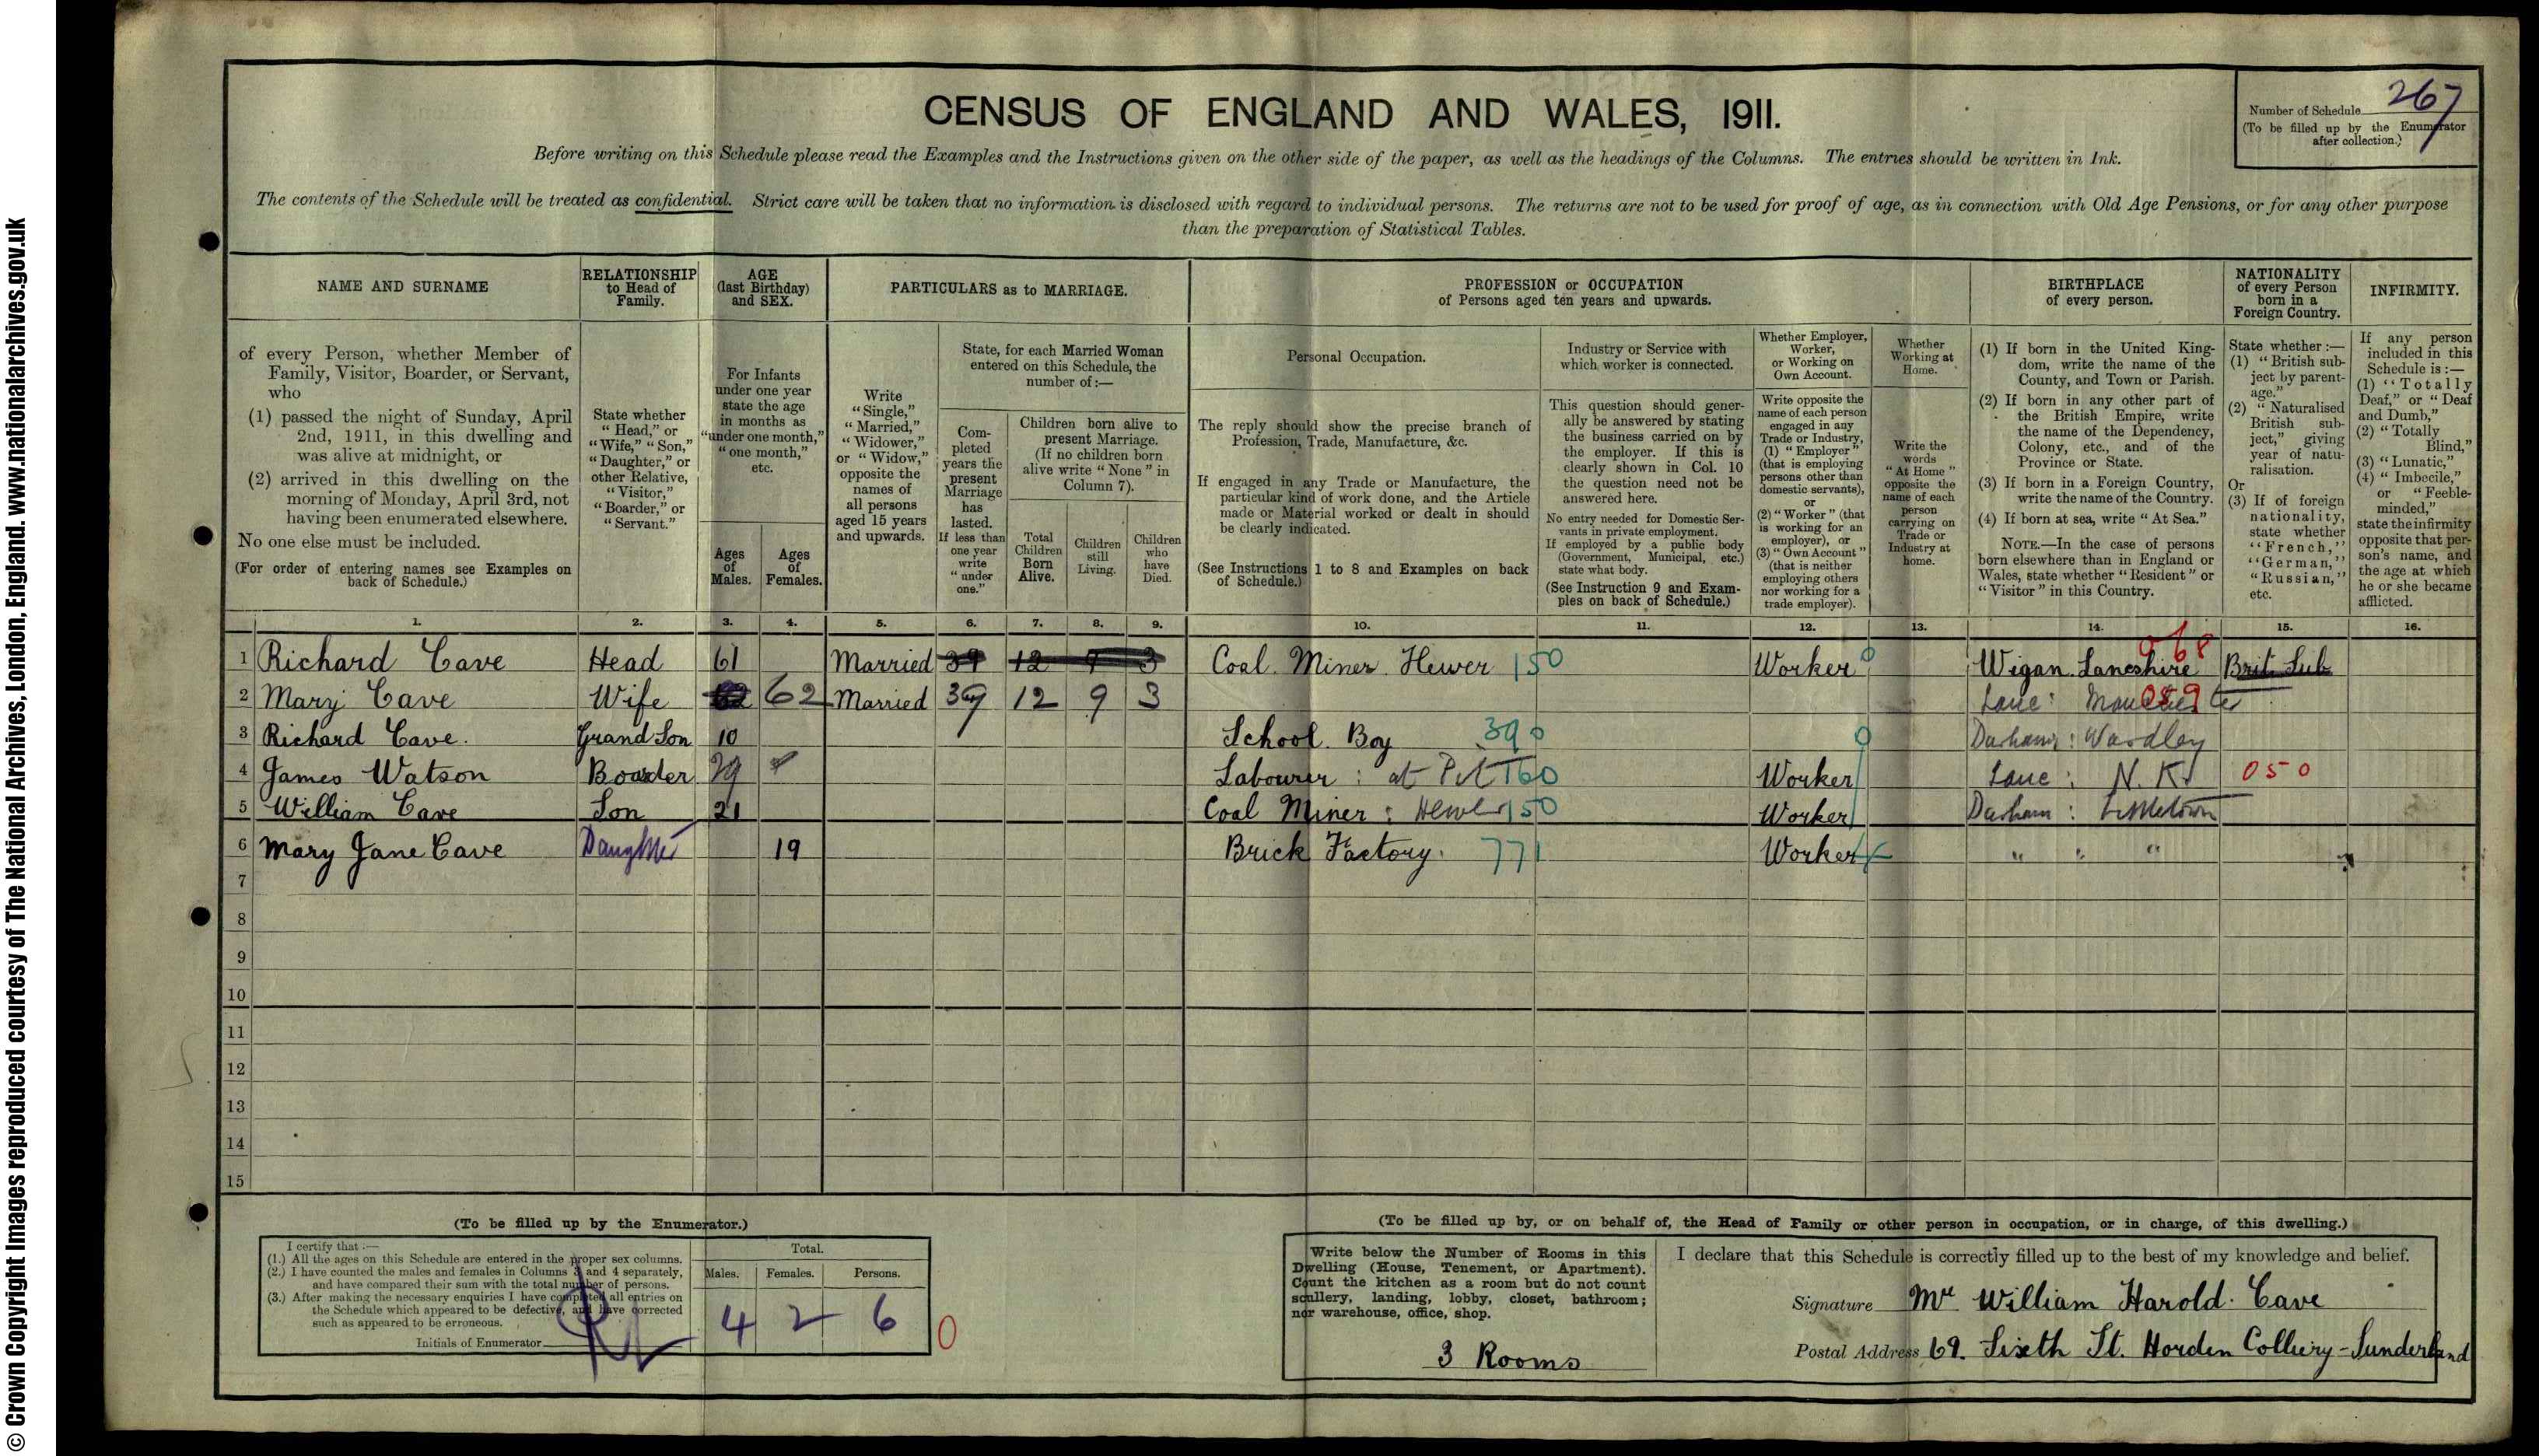 © Crown Copyright Images reproduced courtesy of The National Archives, London, England. www.nationalarchives.gov.uk
CENSUS OF ENGLAND AND WALES, 1911.
Number of Schedule 267
(To be filled up by the Enumerator
after collection.)
Before writing on this Schedule please read the Examples and the Instructions given on the other side of the paper, as well as the headings of the Columns. The entries should be written in Ink.
The contents of the Schedule will be treated as confidential. Strict care will be taken that no information is disclosed with regard to individual persons. The returns are not to be used for proof of age, as in connection with Old Age Pensions, or for any other purpose
than the preparation of Statistical Tables.
NAME AND SURNAME
of every Person, whether Member of
Family, Visitor, Boarder, or Servant,
who
(1) passed the night of Sunday, April
2nd, 1911, in this dwelling and
was alive at midnight, or
(2) arrived in this dwelling on the
morning of Monday, April 3rd, not
having been enumerated elsewhere.
No one else must be included.
(For order of entering names see Examples on
back of Schedule.)
RELATIONSHIP
to Head of
Family.
State whether
"Head," or
"Wife," "Son,"
"Daughter," or
other Relative,
"Visitor,"
"Boarder," or
"Servant."
AGE
(last Birthday)
and SEX.
For Infants
under one year
state the age
in months as
"under one month,"
"one month,"
etc.
Ages
of
Males.
Ages
of
Females.
PARTICULARS as to MARRIAGE.
Write
"Single,"
"Married,"
"Widower,"
or "Widow,"
opposite the
names of
all persons
aged 15 years
and upwards.
State, for each Married Woman
entered on this Schedule, the
number of:—
Com-
pleted
years the
present
Marriage
has
lasted.
If less than
one year
write
"under
one."
Children born alive to
present Marriage.
(If no children born
alive write "None" in
Column 7).
Total
Children
Born
Alive.
Children
still
Living.
Children
who
have
Died.
PROFESSION or OCCUPATION
of Persons aged ten years and upwards.
Personal Occupation.
The reply should show the precise branch of
Profession, Trade, Manufacture, &c.
If engaged in any Trade or Manufacture, the
particular kind of work done, and the Article
made or Material worked or dealt in should
be clearly indicated.
(See Instructions 1 to 8 and Examples on back
of Schedule.)
Industry or Service with
which worker is connected.
This question should gener-
ally be answered by stating
the business carried on by
the employer. If this is
clearly shown in Col. 10
the question need not be
answered here.
No entry needed for Domestic Ser-
vants in private employment.
If employed by a public body
(Government, Municipal, etc.)
state what body.
(See Instruction 9 and Exam-
ples on back of Schedule.)
Whether Employer,
Worker,
or Working on
Own Account.
Write opposite the
name of each person
engaged in any
Trade or Industry,
(1) "Employer"
(that is employing
persons other than
domestic servants),
or
(2) "Worker" (that
is working for an
employer), or
(3) "Own Account"
(that is neither
employing others
nor working for a
trade employer).
Whether
Working at
Home.
Write the
words
"At Home"
opposite the
name of each
person
carrying on
Trade or
Industry at
home.
BIRTHPLACE
of every person.
(1) If born in the United King-
dom, write the name of the
County, and Town or Parish.
(2) If born in any other part of
the British Empire, write
the name of the Dependency,
Colony, etc., and of the
Province or State.
(3) If born in a Foreign Country,
write the name of the Country.
(4) If born at sea, write "At Sea."
NOTE.—In the case of persons
born elsewhere than in England or
Wales, state whether "Resident" or
"Visitor" in this Country.
NATIONALITY
of every Person
born in a
Foreign Country.
State whether:—
(1) "British sub-
ject by parent-
age."
(2) "Naturalised
British sub-
ject," giving
year of natu-
ralisation.
Or
(3) If of foreign
nationality,
state whether
"French,"
"German,"
"Russian,"
etc.
INFIRMITY.
If any person
included in this
Schedule is:—
(1) "Totally
Deaf," or "Deaf
and Dumb,"
(2) "Totally
Blind,"
(3) "Lunatic,"
(4) "Imbecile,"
or "Feeble-
minded,"
state the infirmity
opposite that per-
son's name, and
the age at which
he or she became
afflicted.
1. 2. 3. 4. 5. 6. 7. 8. 9. 10. 11. 12. 13. 14. 15. 16.
1 Richard Cave Head 61 Married 39 12 9 3 Coal Miner Hewer 150 Worker Wigan Lancshire 068 Brit Sub
2 Mary Cave Wife 62 Married 39 12 9 3 Lanc: 059
3 Richard Cave. Grand Son 10 School Boy 390 Durham: Wardley
4 James Watson Boarder 29 Labourer: at Pit T60 Worker Lanc: N.K. 050
5 William Cave Son 21 Coal Miner: Hewer 150 Worker Durham: Littletown
6 Mary Jane Cave Daughter 19 Brick Factory. 771 Worker " " "
7
8
9
10
11
12
13
14
15
(To be filled up by the Enumerator.)
I certify that:—
(1.) All the ages on this Schedule are entered in the proper sex columns.
(2.) I have counted the males and females in Columns 3 and 4 separately,
and have compared their sum with the total number of persons.
(3.) After making the necessary enquiries I have completed all entries on
the Schedule which appeared to be defective, and have corrected
such as appeared to be erroneous.
Initials of Enumerator
Total.
Males. Females. Persons.
4 2 6 0
(To be filled up by, or on behalf of, the Head of Family or other person in occupation, or in charge, of this dwelling.)
Write below the Number of Rooms in this
Dwelling (House, Tenement, or Apartment).
Count the kitchen as a room but do not count
scullery, landing, lobby, closet, bathroom;
nor warehouse, office, shop.
3 Rooms
I declare that this Schedule is correctly filled up to the best of my knowledge and belief.
Signature Mr William Harold Cave
Postal Address 69. Sixth St. Horden Colliery - Sunderland